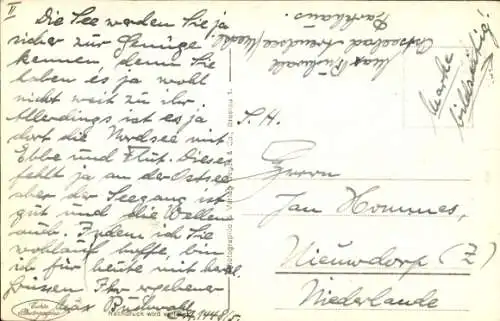 II
Die See werden Sie ja
sicher zur Genüge
kennen, denn Sie
haben es ja wohl
nicht weit zu ihr.
Allerdings ist es ja
dort die Nordsee mit
Ebbe und Flut. Dieses
fehlt ja an der Ostsee
aber der Seegang ist
gut und die Wellen
auch. Indem ich Sie
wohlauf hoffe, bin
ich für heute mit herzl.
Grüssen Ihr ergebener
Max Buhwahl
Echte Photographie
Nachdruck wird
Max Buhwahl
Ostseebad
Parkhaus.
Marke
bildseitig!
S. H.
Herrn
Jan Hommes,
Nieuwdorp (Z)
Niederlande